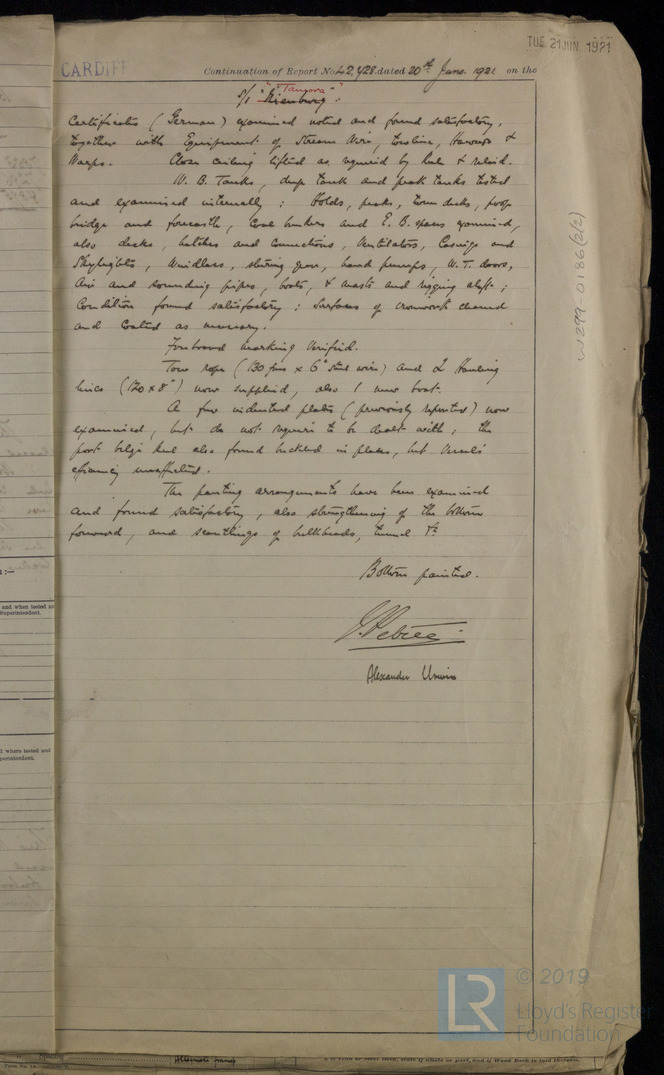 TUE 21 JUN 1921
CARDIFF
Continuation of Report No 42,428 dated 20th June 1921 on the
"Tangora"
S/S "Nienburg".
Certificates (German) examined noted and found satisfactory,
together with Equipment of Stream Wire, towline, Hawsers &
Warps. Close ceiling lifted as required by Rule & relaid.
W. B. Tanks, deep tank and peak tanks tested
and examined internally; Holds, peaks, tween decks, poop
bridge and forecastle, Coal bunkers and E. B. spaces examined,
also decks, hatches and connections, Ventilators, Casings and
Skylights, Windlass, steering gear, hand pumps, W. T. doors,
air and sounding pipes, boats, & masts and rigging aloft;
Condition found satisfactory; Surfaces of ironwork cleaned
and coated as necessary.
Freeboard marking verified.
Tow rope (130 fms x 6" steel wire) and 2 Hauling
lines (120 x 8") now supplied, also 1 new boat.
A few indented plates (previously reported) now
examined, but do not require to be dealt with; the
port bilge keel also found buckled in places, but Vessel's
efficiency unaffected.
The panting arrangements have been examined
and found satisfactory, also strengthening of the bottom
forward, and scantlings of bulkheads, tunnel &c
Bottom painted.
Alexander Urwin
W299-0186 (2/2)
and when tested
Superintendent.
where tested and
LR
© 2019
Lloyd's Register
Foundation